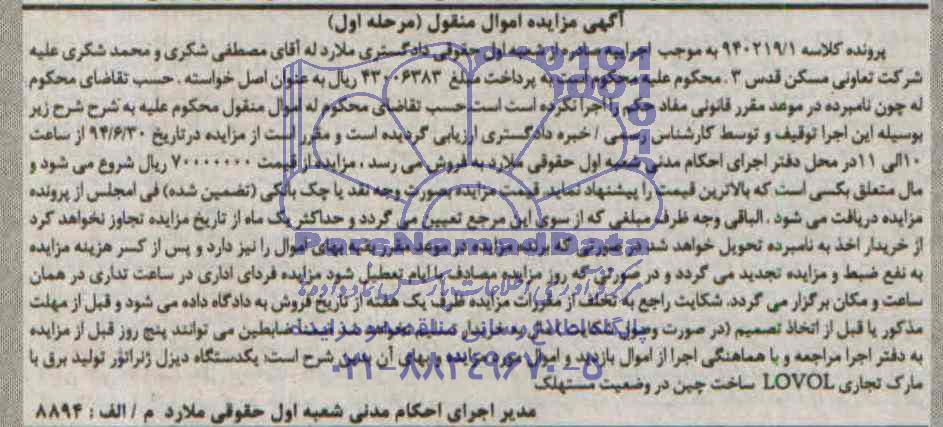 آگهی مزایده اموال منقول (مرحله اول)
پرونده کلاسه ۹۴۰۲۱۹/۱ به موجب اجرائیه صادره از شعبه اول حقوقی دادگستری ملارد له آقای مصطفی شکری و محمد شکری علیه
شرکت تعاونی مسکن قدس ۳ ، محکوم علیه محکوم است به پرداخت مبلغ ۴۳۰۰۶۳۸۳ ریال به عنوان اصل خواسته . حسب تقاضای محکوم
له چون نامبرده در موعد مقرر قانونی مفاد حکم را اجرا نکرده است است حسب تقاضای محکوم له اموال منقول محکوم علیه به شرح شرح زیر
بوسیله این اجرا توقیف و توسط کارشناس رسمی / خبره دادگستری ارزیابی گردیده است و مقرر است از مزایده درتاریخ ۹۴/۶/۳۰ از ساعت
۱۰الی ۱۱ در محل دفتر اجرای احکام مدنی شعبه اول حقوقی ملارد به فروش می رسد ، مزایده از قیمت ۷۰۰۰۰۰۰۰ ریال شروع می شود و
مال متعلق بکسی است که بالاترین قیمت را پیشنهاد نماید. قیمت مزایده بصورت وجه نقد یا چک بانکی (تضمین شده) فی امجلس از پرونده
مزایده دریافت می شود . الباقی وجه ظرف مبلغی که از سوی این مرجع تعیین می گردد و حداکثر یک ماه از تاریخ مزایده تجاوز نخواهد کرد
از خریدار اخذ به نامبرده تحویل خواهد شد در صورتی که برنده مزایده در موعد مقرر بقیه بهای اموال را نیز دارد و پس از کسر هزینه مزایده
به نفع ضبط و مزایده تجدید می گردد و در صورتی که روز مزایده مصادف با ایام تعطیل شود مزایده فردای اداری در ساعت تداری در همان
ساعت و مکان برگزار می گردد. شکایت راجع به تخلف از مقررات مزایده ظرف یک هفته از تاریخ فروش به دادگاه داده می شود و قبل از مهلت
مذکور یا قبل از اتخاذ تصمیم (در صورت وصول شکایت) مال به خریدار تسلیم نخواهد شد می توانند پنج روز قبل از مزایده
به دفتر اجرا مراجعه و با هماهنگی اجرا از اموال بازدید و اموال مورد مزایده و بهای آن بدین شرح است: یکدستگاه دیزل ژنراتور تولید برق با
مارک تجاری LOVOL ساخت چین در وضعیت مستهلک
مدیر اجرای احکام مدنی شعبه اول حقوقی ملارد م / الف : ۸۸۹۴
ParsNamadData
پایگاه اطلاع رسانی مناقصه و مزایده
۰۲۱-۸۸۳۴۹۶۷۰-۵